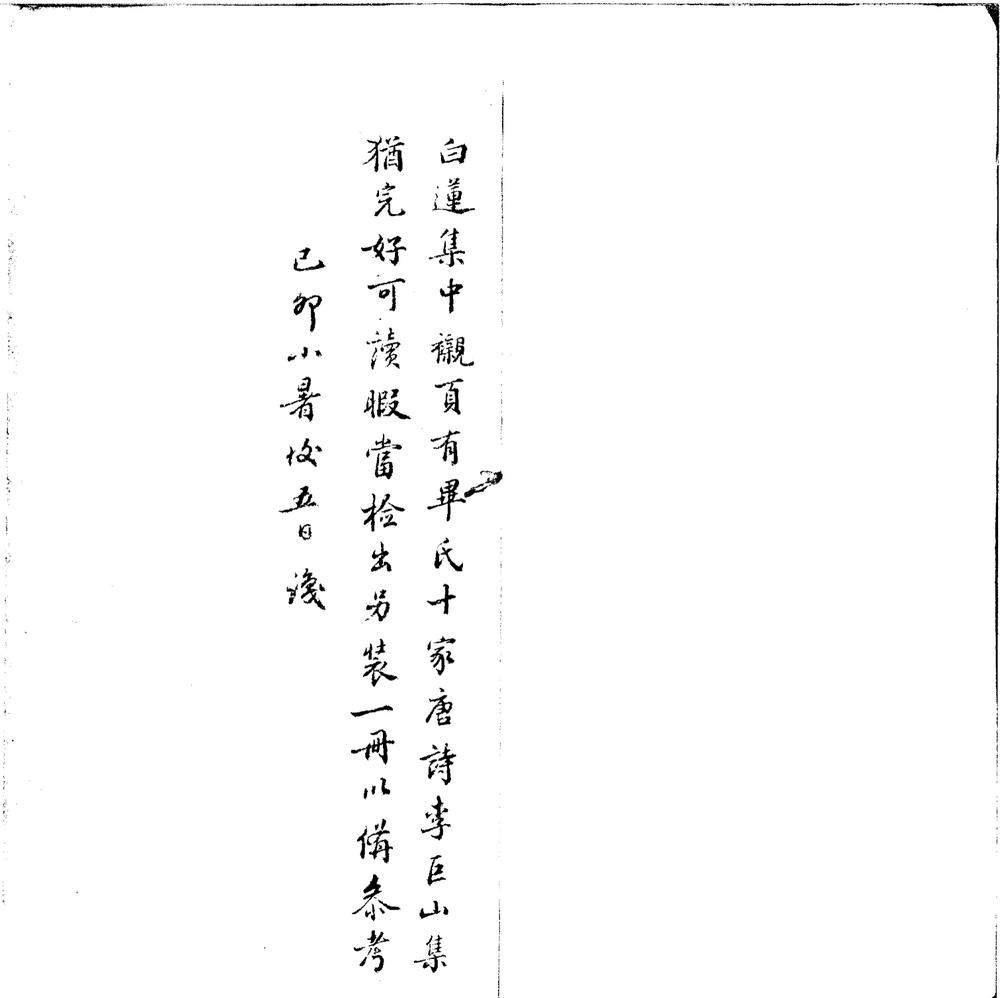 白蓮集中襯頁有畢氏十家唐詩李巨山集
猶完好可讀暇當检出另装一冊以備參考
己卯小暑後五日識